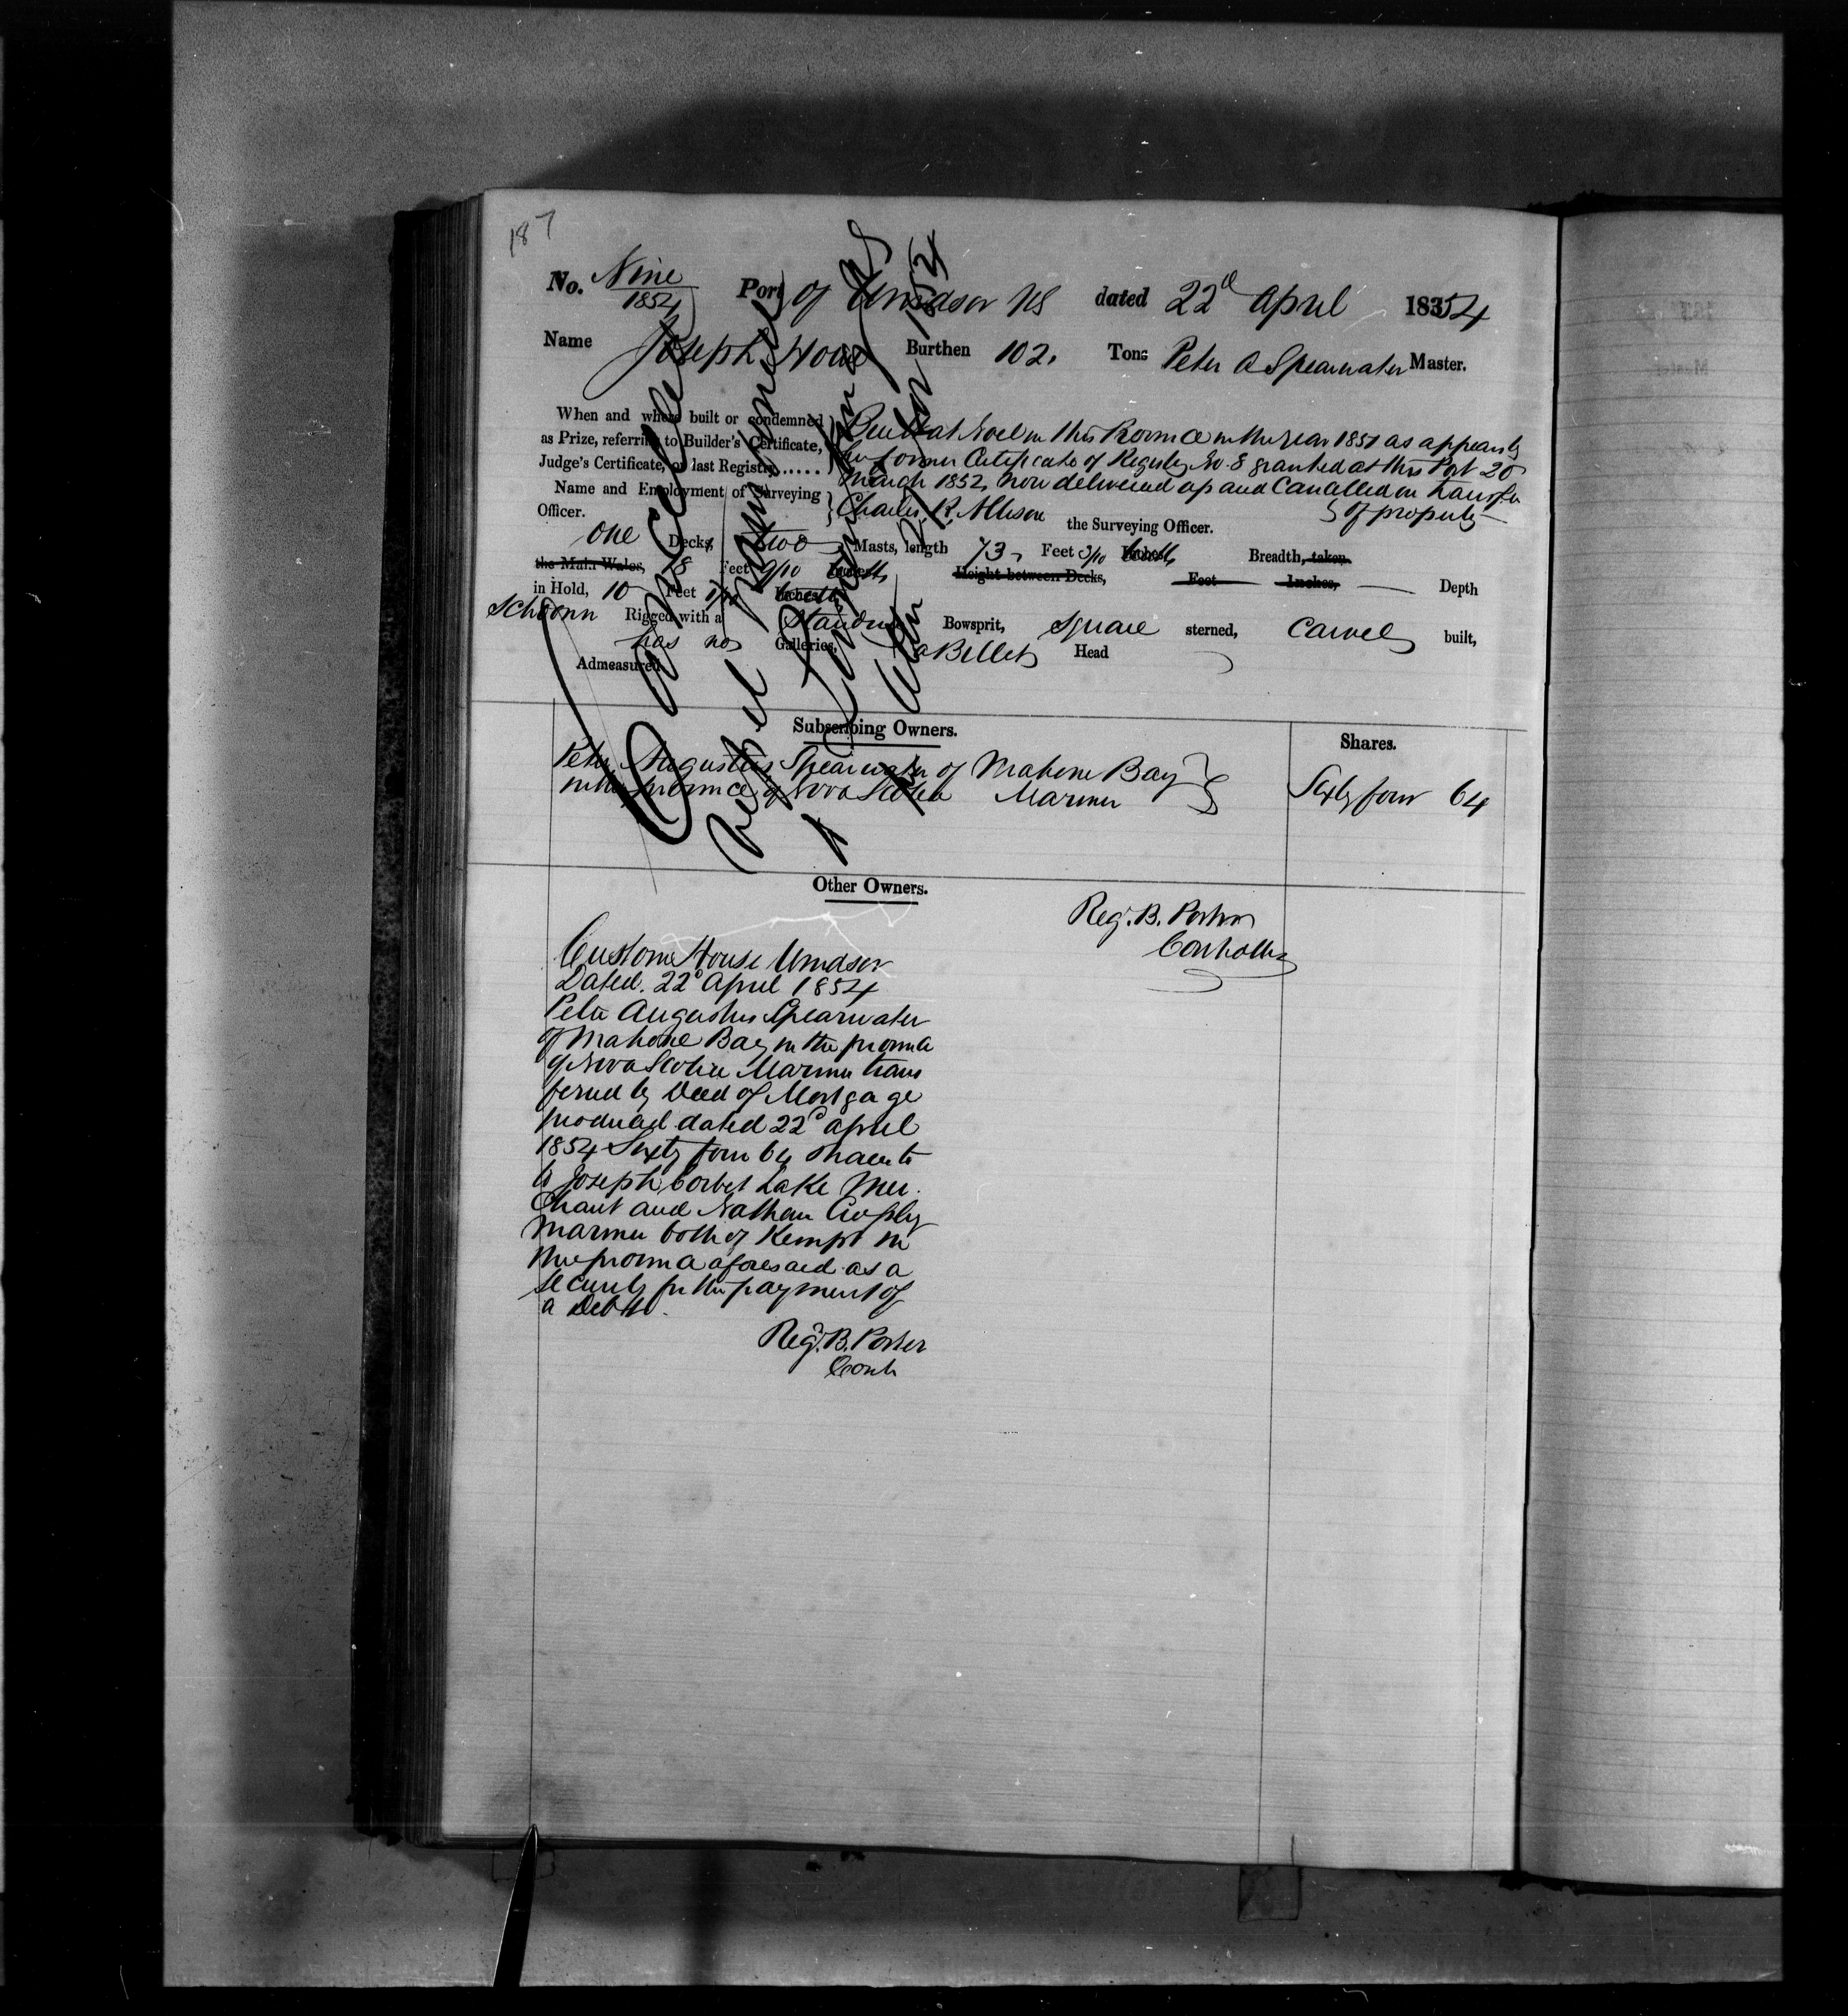 187
No. Nine 1854 Port of Windsor NS dated 22d April 1854
Name Joseph Howe Burthen 102. Tons Peter A Spearwater Master.
When and where built or condemned
as Prize, referring to Builder's Certificate,
Judge's Certificate, or last Registry......
Built at Noel in this Province in the year 1851 as appears by
former Certificate of Registry No. 8 granted at this Port 20
March 1852, now delivered up and Cancelled on transfer
of property
Name and Employment of Surveying
Officer.
Charles R. Allison the Surveying Officer.
One Decks two Masts, length 73 Feet 3/10 Inches, Breadth, taken
the Main Wales, 18 Feet 9/10 Inches, Height between Decks, Feet Inches, Depth
in Hold, 10 Feet Inches
Schoonr Rigged with a Standing Bowsprit, Square sterned, Carvel built,
has no Galleries, a Billet Head
Admeasured
Cancelled
Vessel
1854
Subscribing Owners.
Shares.
Peter Augustus Spearwater of Mahone Bay
in the Province of Nova Scotia Mariner
Sixty four 64
Other Owners.
Reg. B. Porter
Controller
Custom House Windsor
Dated. 22d April 1854
Peter Augustus Spearwater
of Mahone Bay in the province
of Nova Scotia Mariner trans
ferred by Deed of Mortgage
produced dated 22d April
1854 Sixty four 64 shares to
to Joseph Corbet Lake Mer.
chant and Nathan
Mariner both of Kempt in
the province aforesaid as a
security for the payment of
a Debt.
Reg. B. Porter
Contr